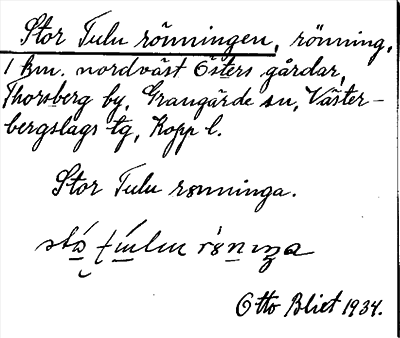 Stor Tulu rönningen, rönning,
1 km. nordväst Östers gårdar,
Thorsberg by, Grangärde sn, Väster-
bergslags tg, Kopp l.
Stor Tulu rønninga.
Otto Blixt 1934.